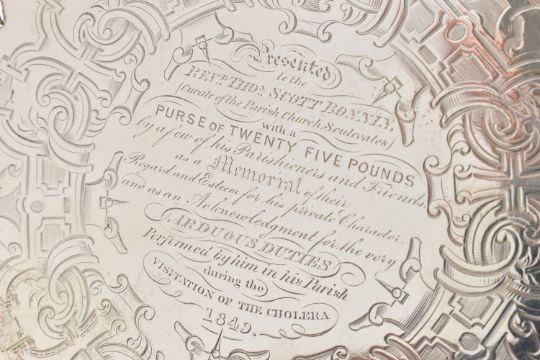 Presented
to the
REVD. THOS. SCOTT BONNIN,
(Curate of the Parish Church Sculcoates)
with a
PURSE OF TWENTY FIVE POUNDS
by a few of his Parishioners and Friends,
as a Memorial of their
Regard and Esteem for his private Character.
and as an Acknowledgment for the very
ARDUOUS DUTIES
Performed by him in his Parish
during the
VISITATION OF THE CHOLERA
1849.